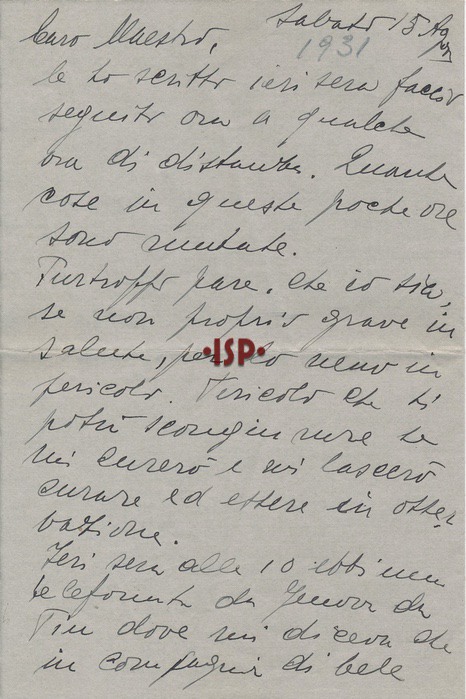 Sabato 15 Ag
1931
Caro Maestro,
le ho scritto ieri sera faccio
seguito ora a qualche
ora di distanza. Quante
cose in queste poche ore
sono mutate.
Purtroppo pare, che io sia,
se non proprio grave in
salute, per lo meno in
pericolo. Pericolo che si
potrà scongiurare se
mi curerò e mi lascerò
curare ed essere in osser
vazione.
Ieri sera alle 10 ebbi una
telefonata da Genova da
dove mi diceva che
in compagnia di
·ISP·